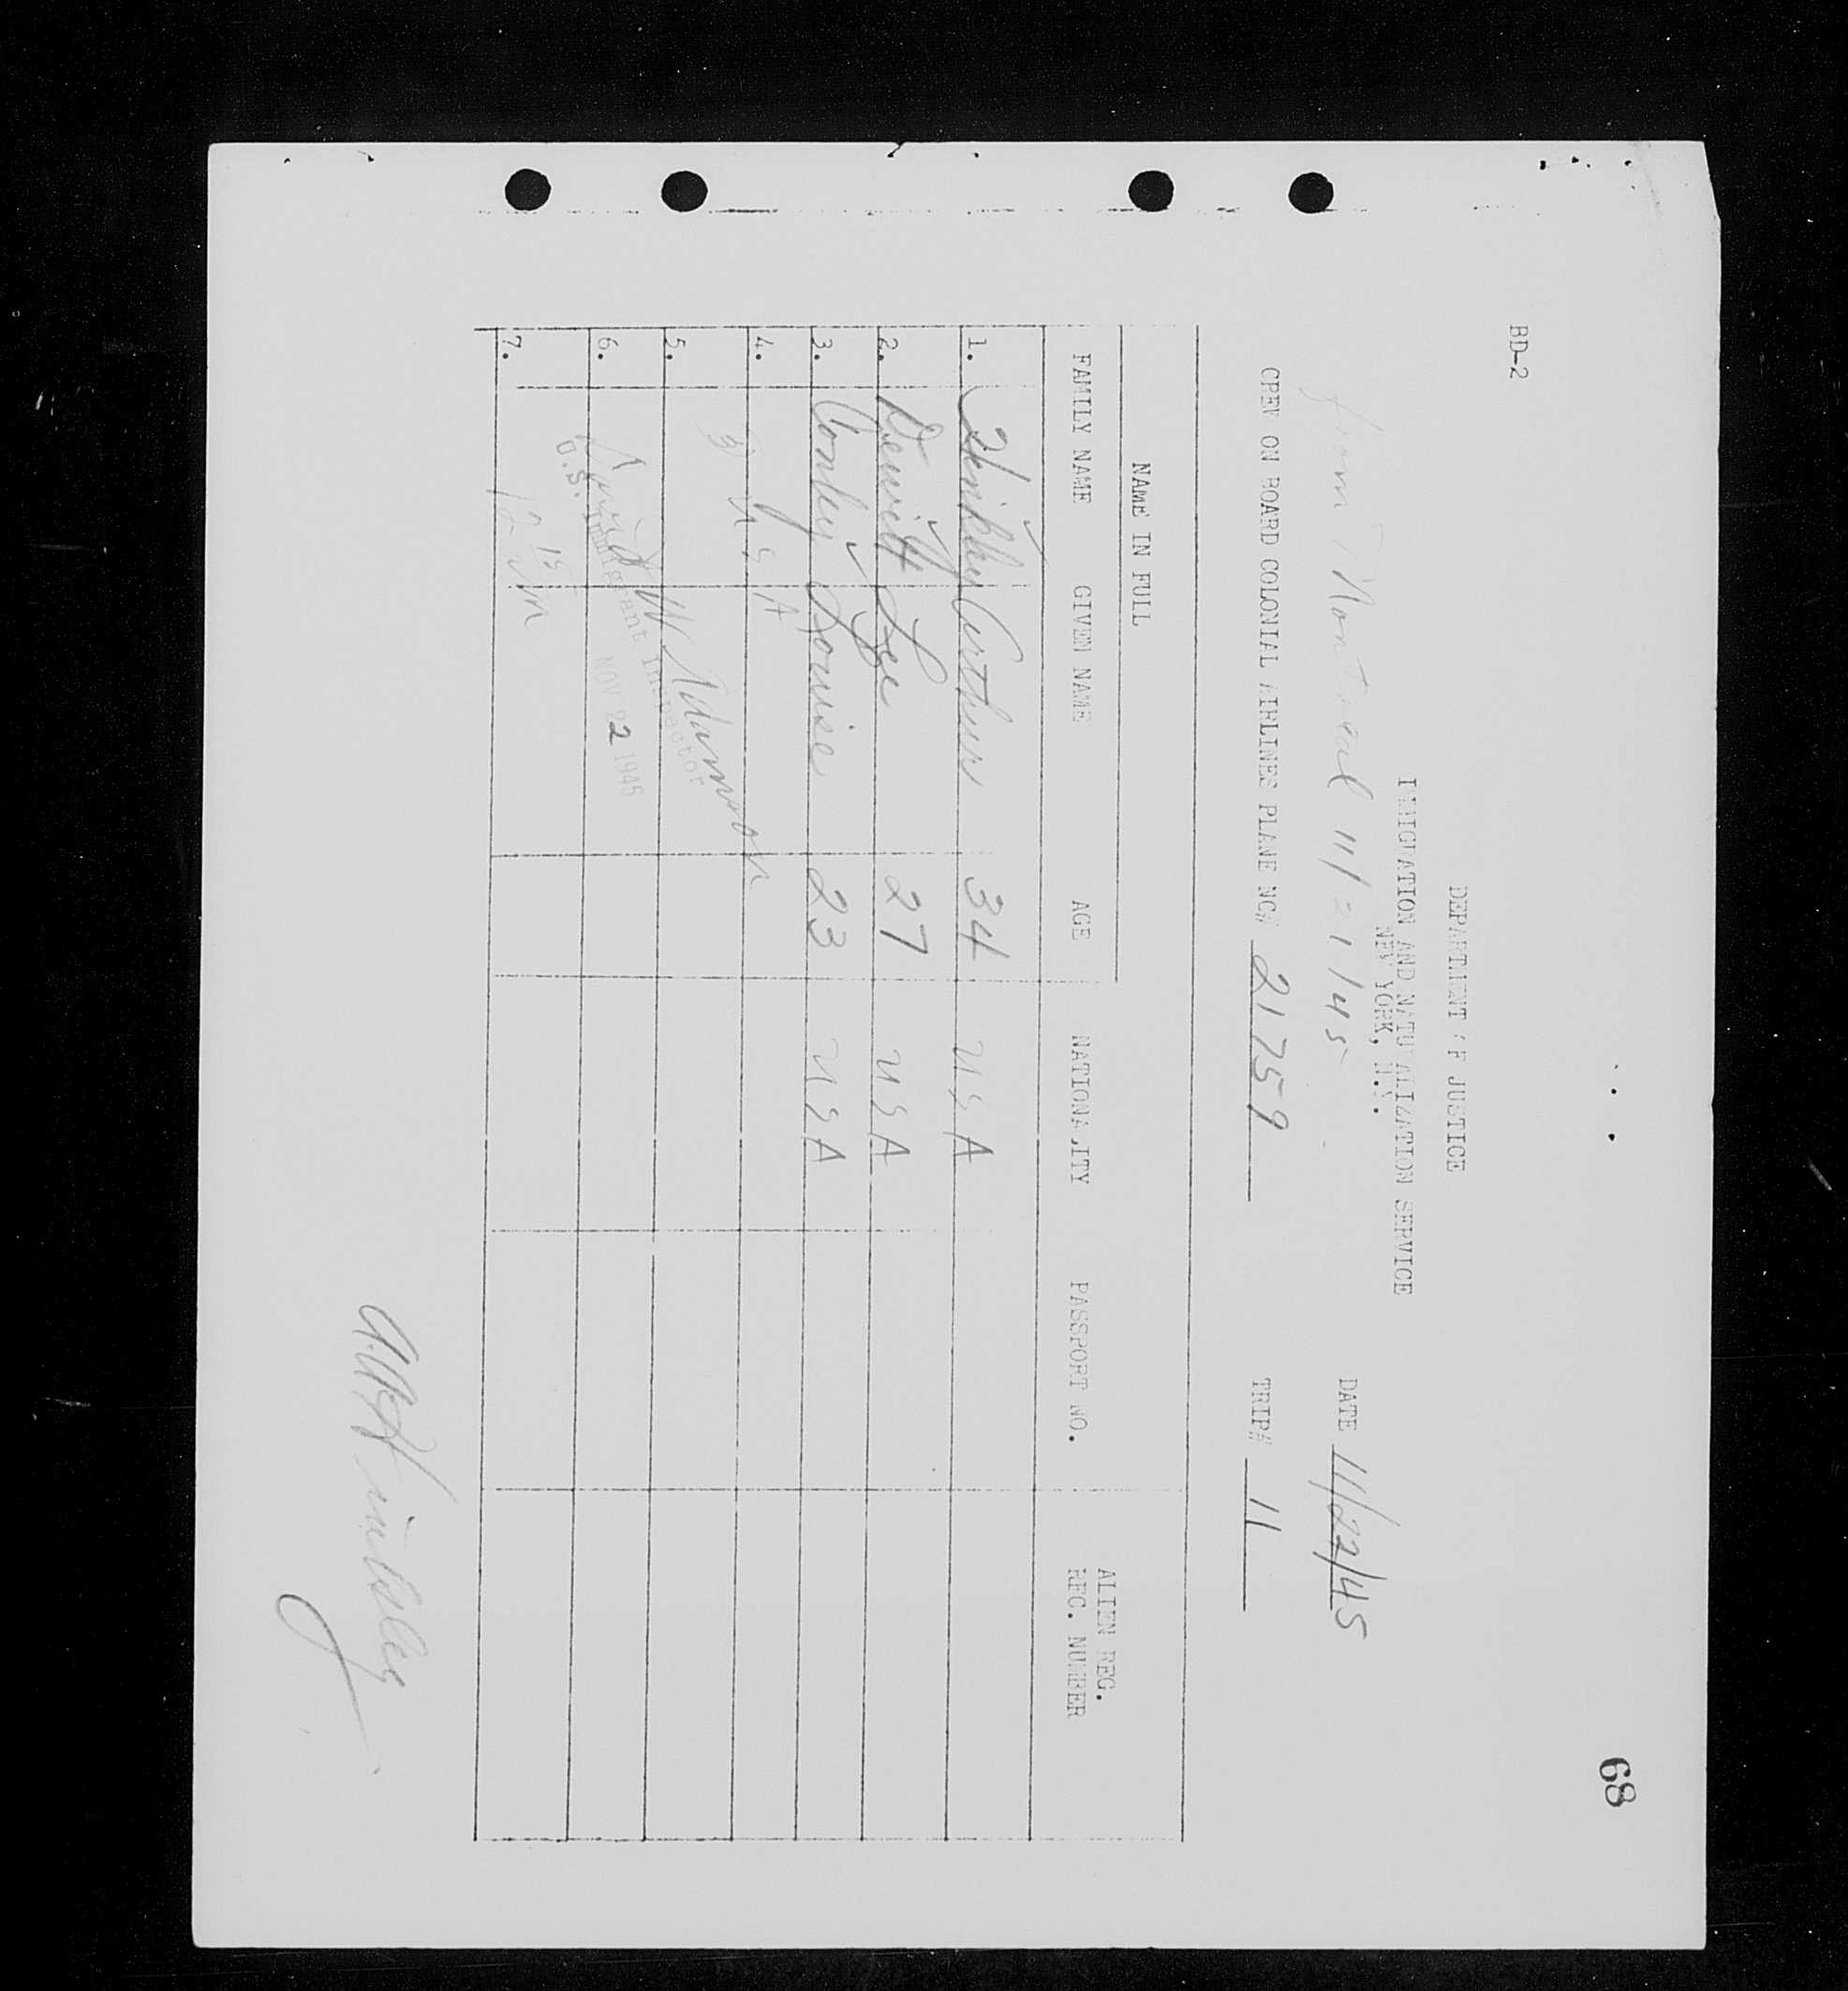 68
BD-2
DEPARTMENT OF JUSTICE
IMMIGRATION AND NATURALIZATION SERVICE
NEW YORK, N.Y.
from Montreal 11/21/45
DATE 11/22/45
CREW ON BOARD COLONIAL AIRLINES PLANE NC# 21759 TRIP# 11
NAME IN FULL
FAMILY NAME GIVEN NAME AGE NATIONALITY PASSPORT NO. ALIEN REG. REC. NUMBER
1. Hinkley Arthur 34 USA
2. Dewitt Lee 27 USA
3. Conley Louise 23 USA
4.
3 USA
5.
6.
David W Adamson
U.S. Immigrant Inspector
NOV 22 1945
7.
12 15